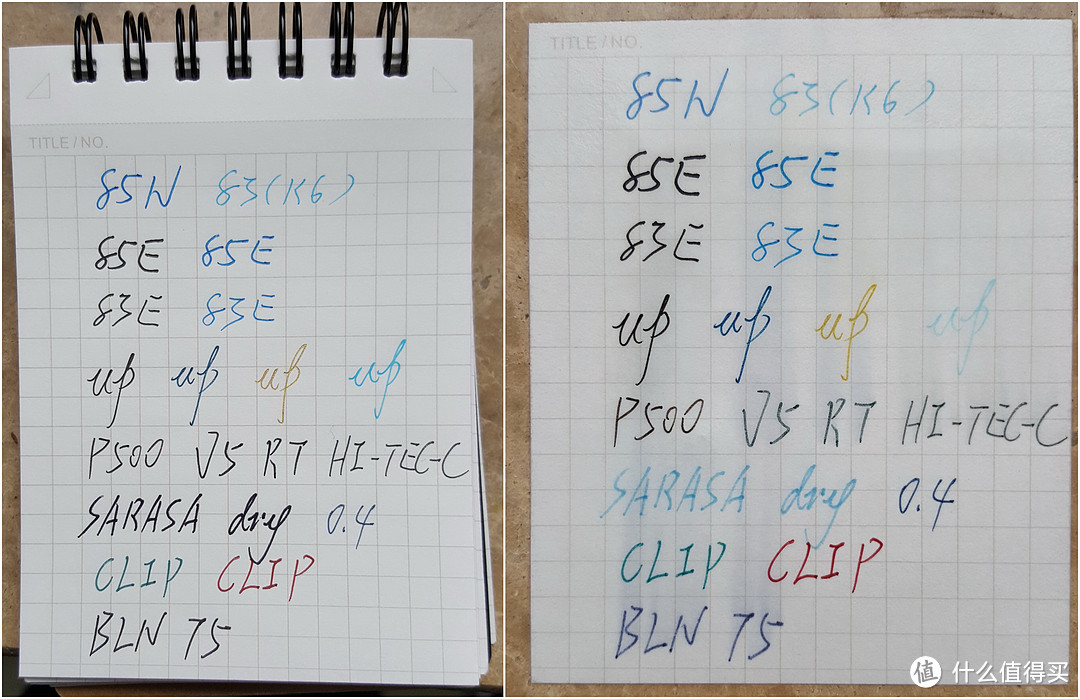 TITLE / NO.
85N 83(K6)
85E 85E
83E 83E
up up up up
P500 V5 RT HI-TEC-C
SARASA dry 0.4
CLIP CLIP
BLN 75
TITLE / NO.
85N 83(K6)
85E 85E
83E 83E
up up up up
P500 V5 RT HI-TEC-C
SARASA dry 0.4
CLIP CLIP
BLN 75
值 什么值得买